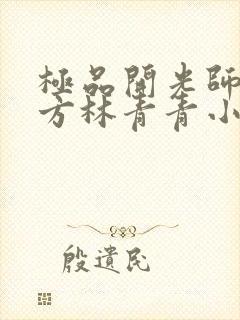 極品開光師
方林青青小
殷遺民